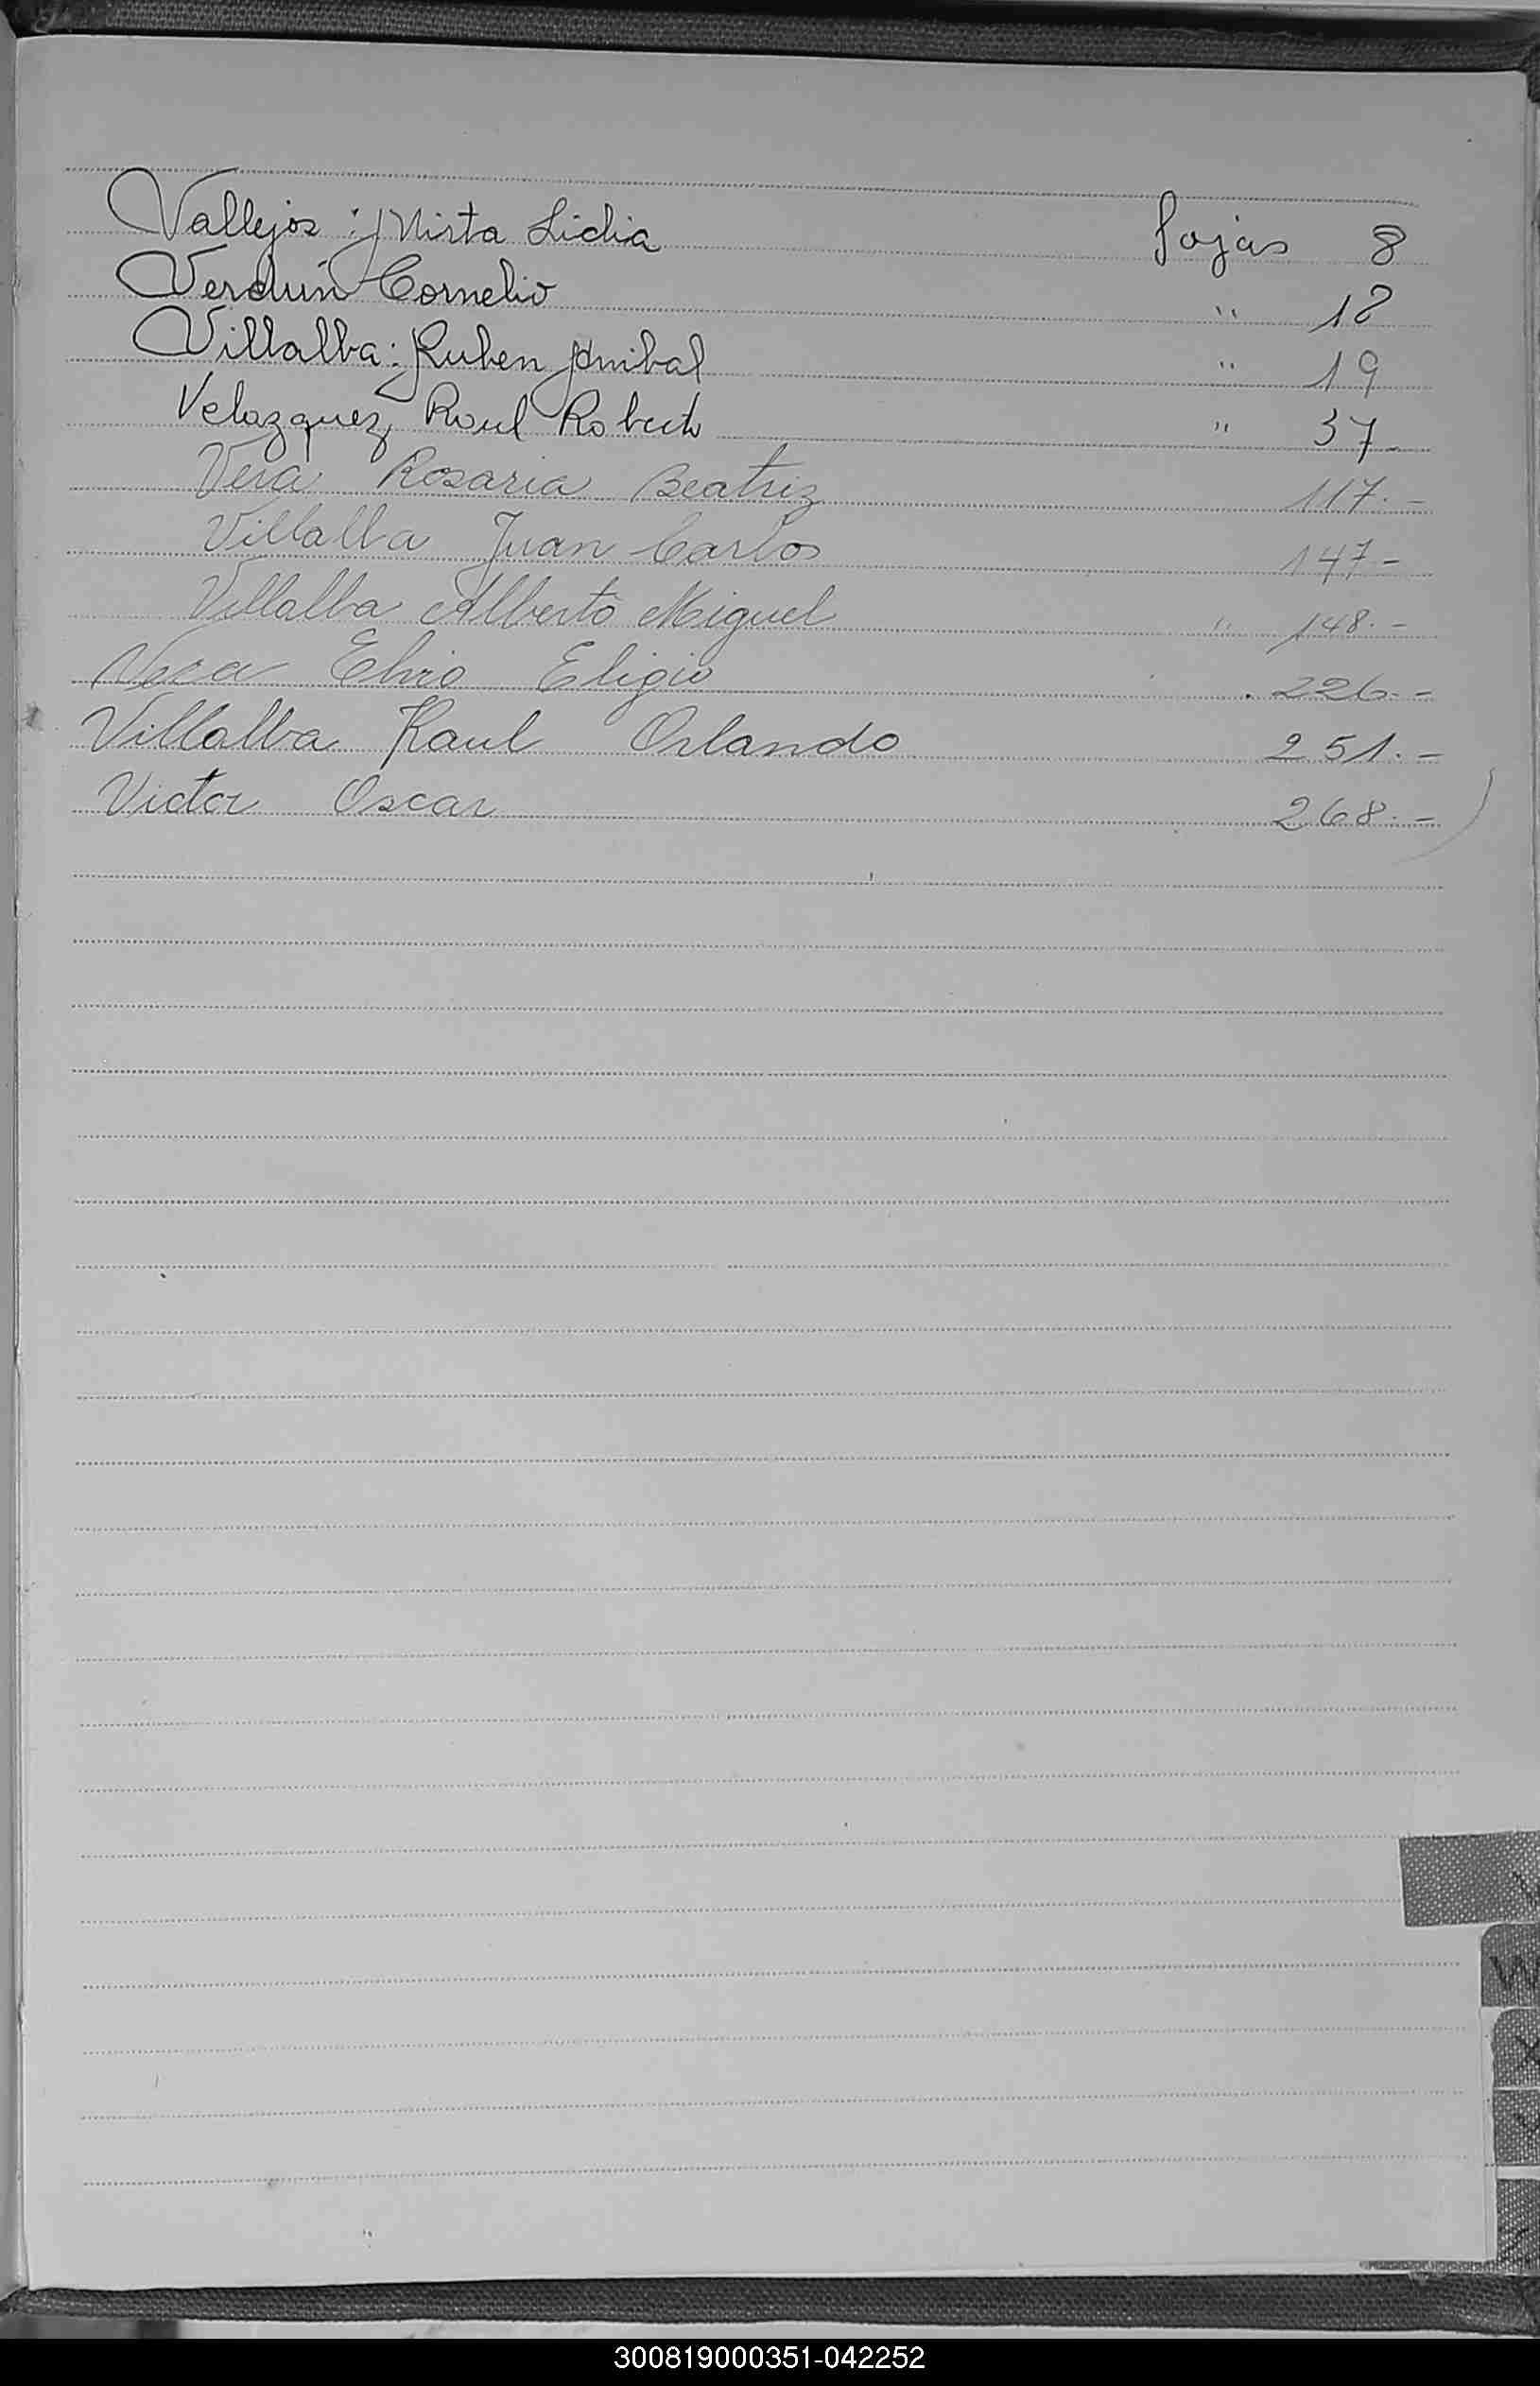 Vallejos : Mirta Lidia fojas 8
Verdún Cornelio " 18
Villalba : Ruben Anibal " 19
Velazquez, Raul Roberto " 37
Vera Rosaria Beatriz 117.-
Villalba Juan Carlos 147-
Villalba Alberto Miguel " 148.-
Vera Elvio Eligio 226.-
Villalba Raul Orlando 251.-
Victor Oscar 268.-
V
W
X
Y
300819000351-042252